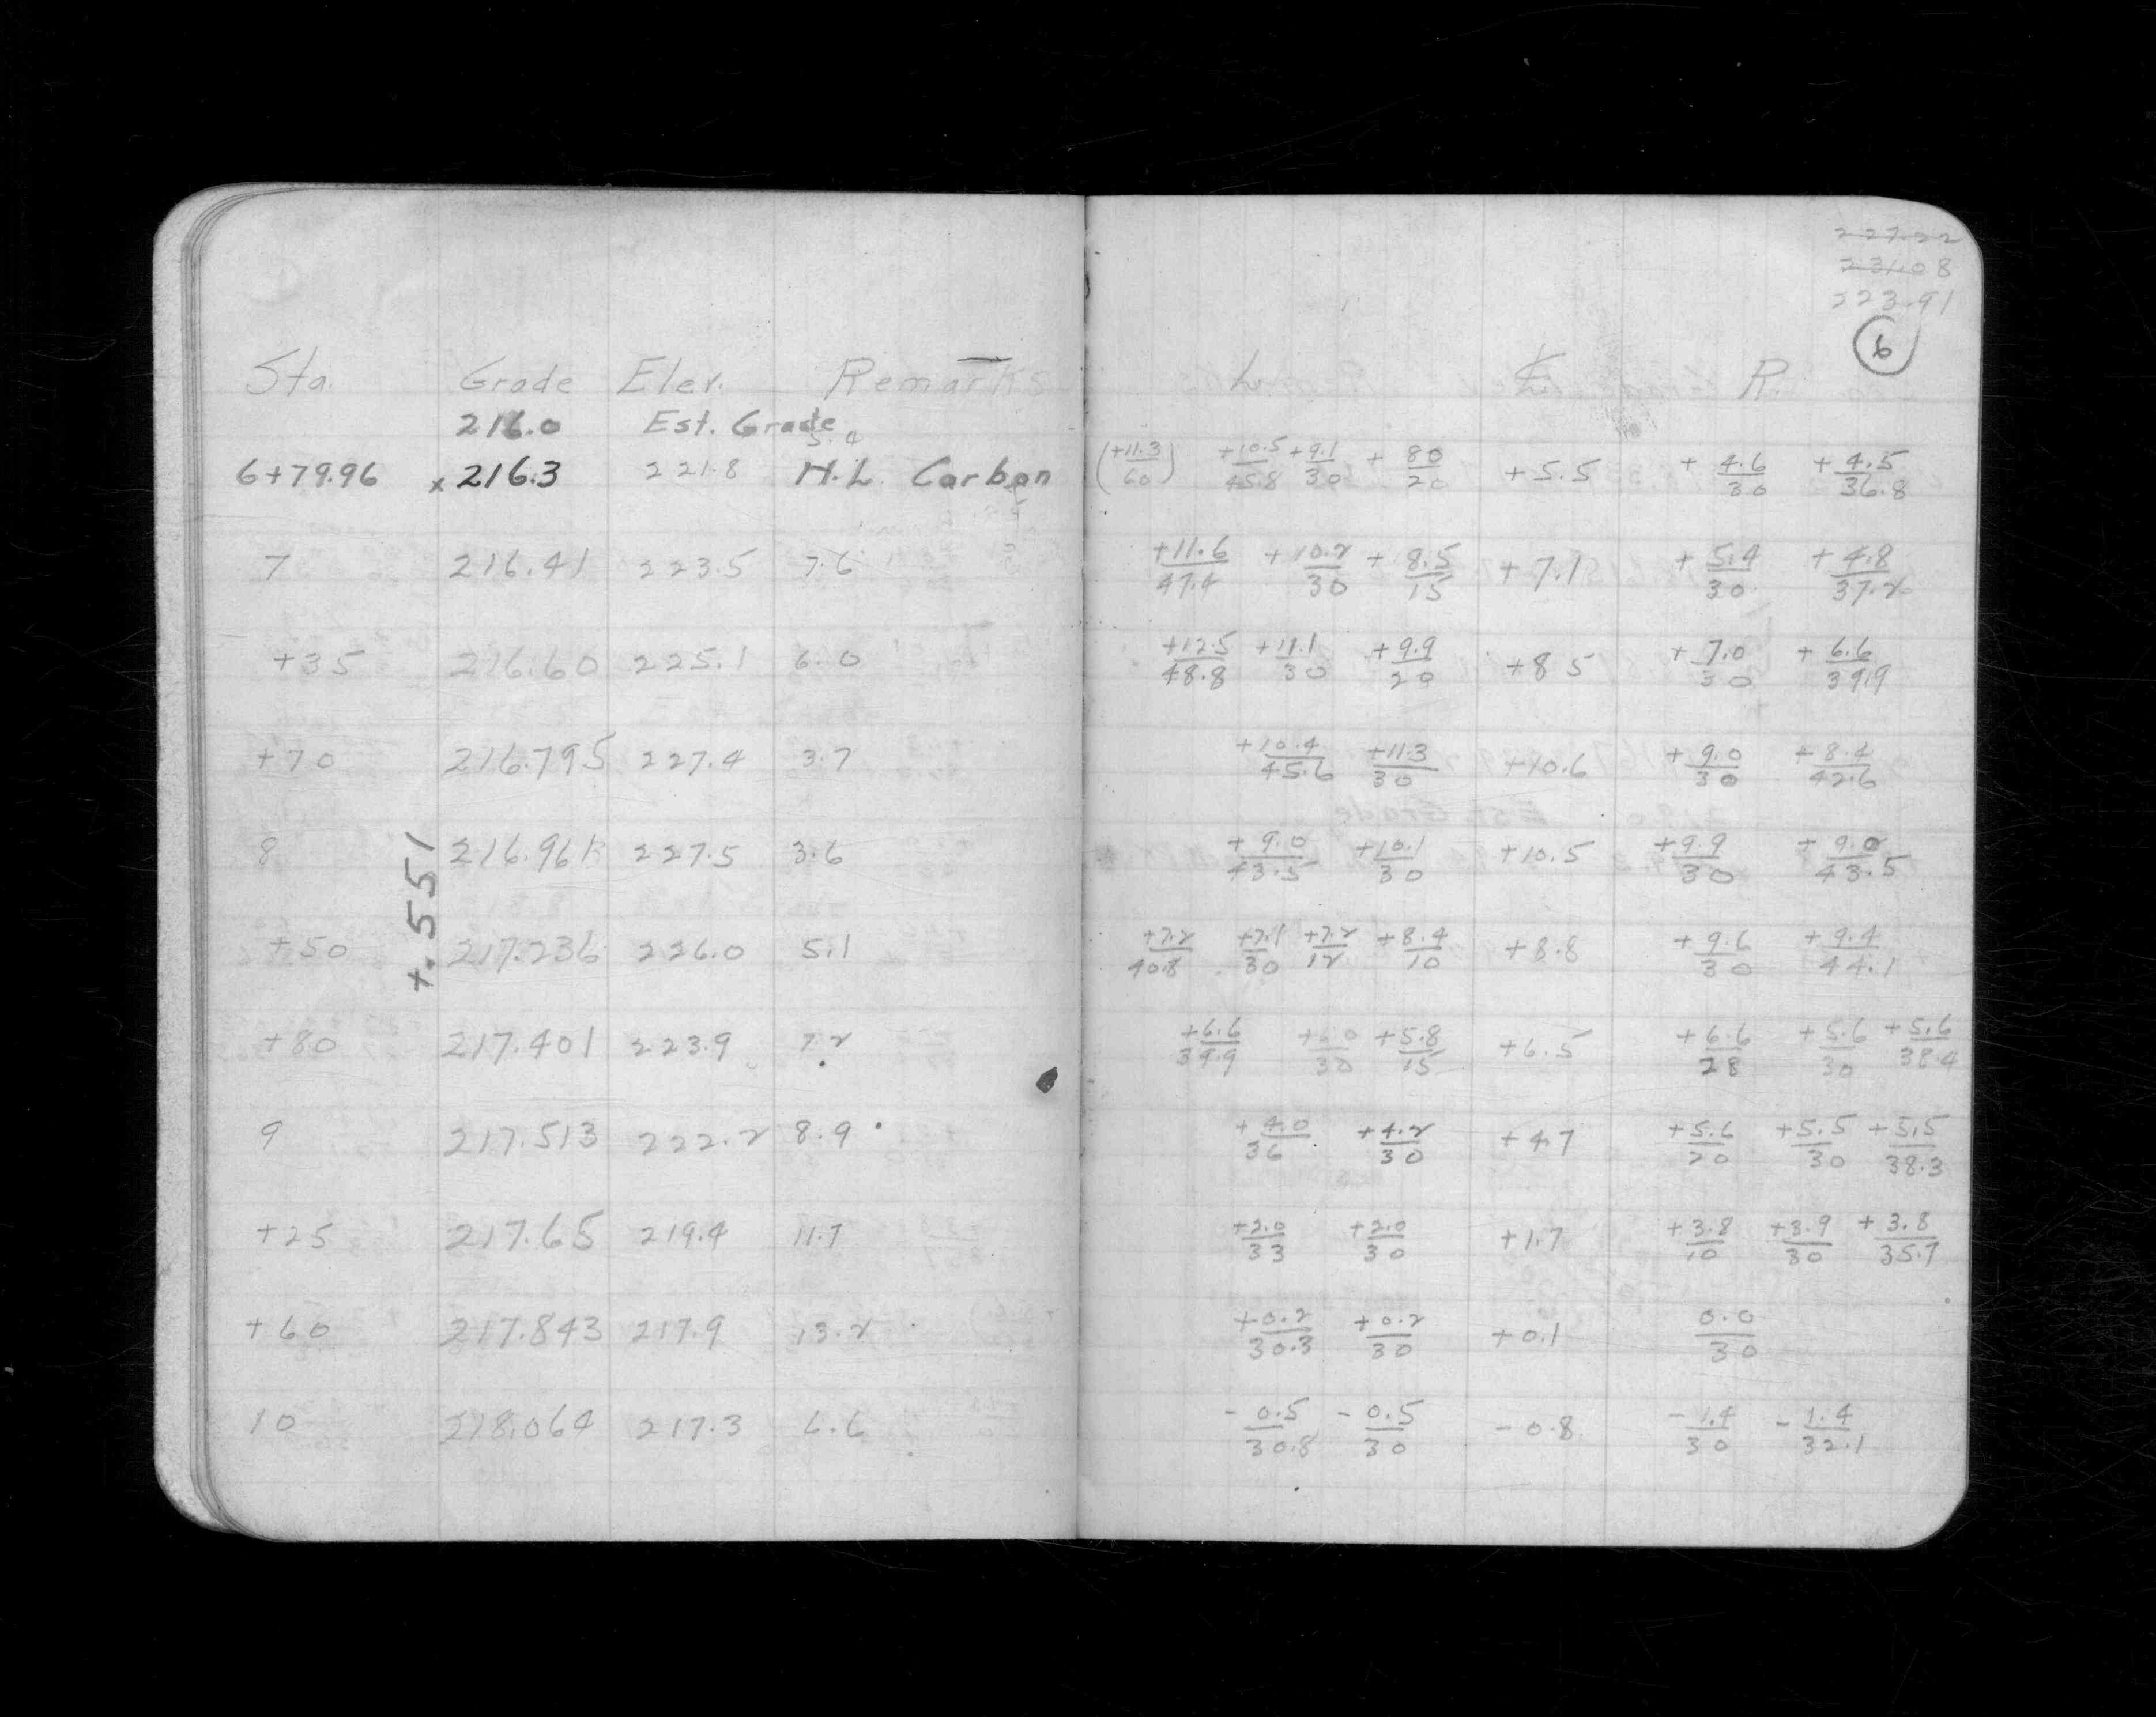 Sta. Grade Elev. Remarks
216.0 Est. Grade
6+79.96 x 216.3 221.8 H.L. Carbon
7 216.41 223.5 7.6
+35 216.60 225.1 6.0
+70 216.795 227.4 3.7
8 216.961 227.5 3.6
+50 217.236 226.0 5.1
+80 217.401 223.9 7.2
9 217.513 222.2 8.9
+25 217.65 219.4 11.7
+60 217.843 217.9 13.2
10 218.064 217.3 6.6
+.551
227.22
231.08
223.91
6
L ℄ R.
(+11.3/60) +10.5/45.8 +9.1/30 + 80/20 +5.5 + 4.6/30 + 4.5/36.8
+11.6/47.4 + 10.2/30 + 8.5/15 + 7.1 + 5.4/30 + 4.8/37.2
+12.5/48.8 +11.1/30 +9.9/20 +8 5 + 7.0/30 + 6.6/39.9
+10.4/45.6 +11.3/30 +10.6 + 9.0/30 + 8.4/42.6
+ 9.0/43.5 +10.1/30 +10.5 +9.9/30 + 9.0/43.5
+7.2/40.8 +7.1/30 +7.2/12 +8.4/10 +8.8 + 9.6/30 + 9.4/44.1
+6.6/39.9 +6.0/30 +5.8/15 +6.5 +6.6/28 +5.6/30 +5.6/38.4
+ 4.0/36 +4.2/30 +4.7 +5.6/20 +5.5/30 +5.5/38.3
+2.0/33 +2.0/30 +1.7 +3.8/10 +3.9/30 + 3.8/35.7
+0.2/30.3 +0.2/30 +0.1 0.0/30
- 0.5/30.8 - 0.5/30 -0.8 - 1.4/30 - 1.4/32.1